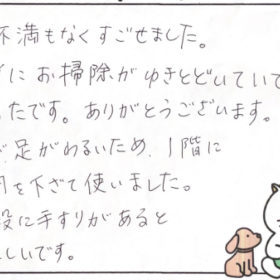 不満もなくすごせました。
にお掃除がゆきとどいていて
たです。ありがとうございます。
足がわるいため、1階に
を下ざて使いました。
段に手すりがあると
しいです。